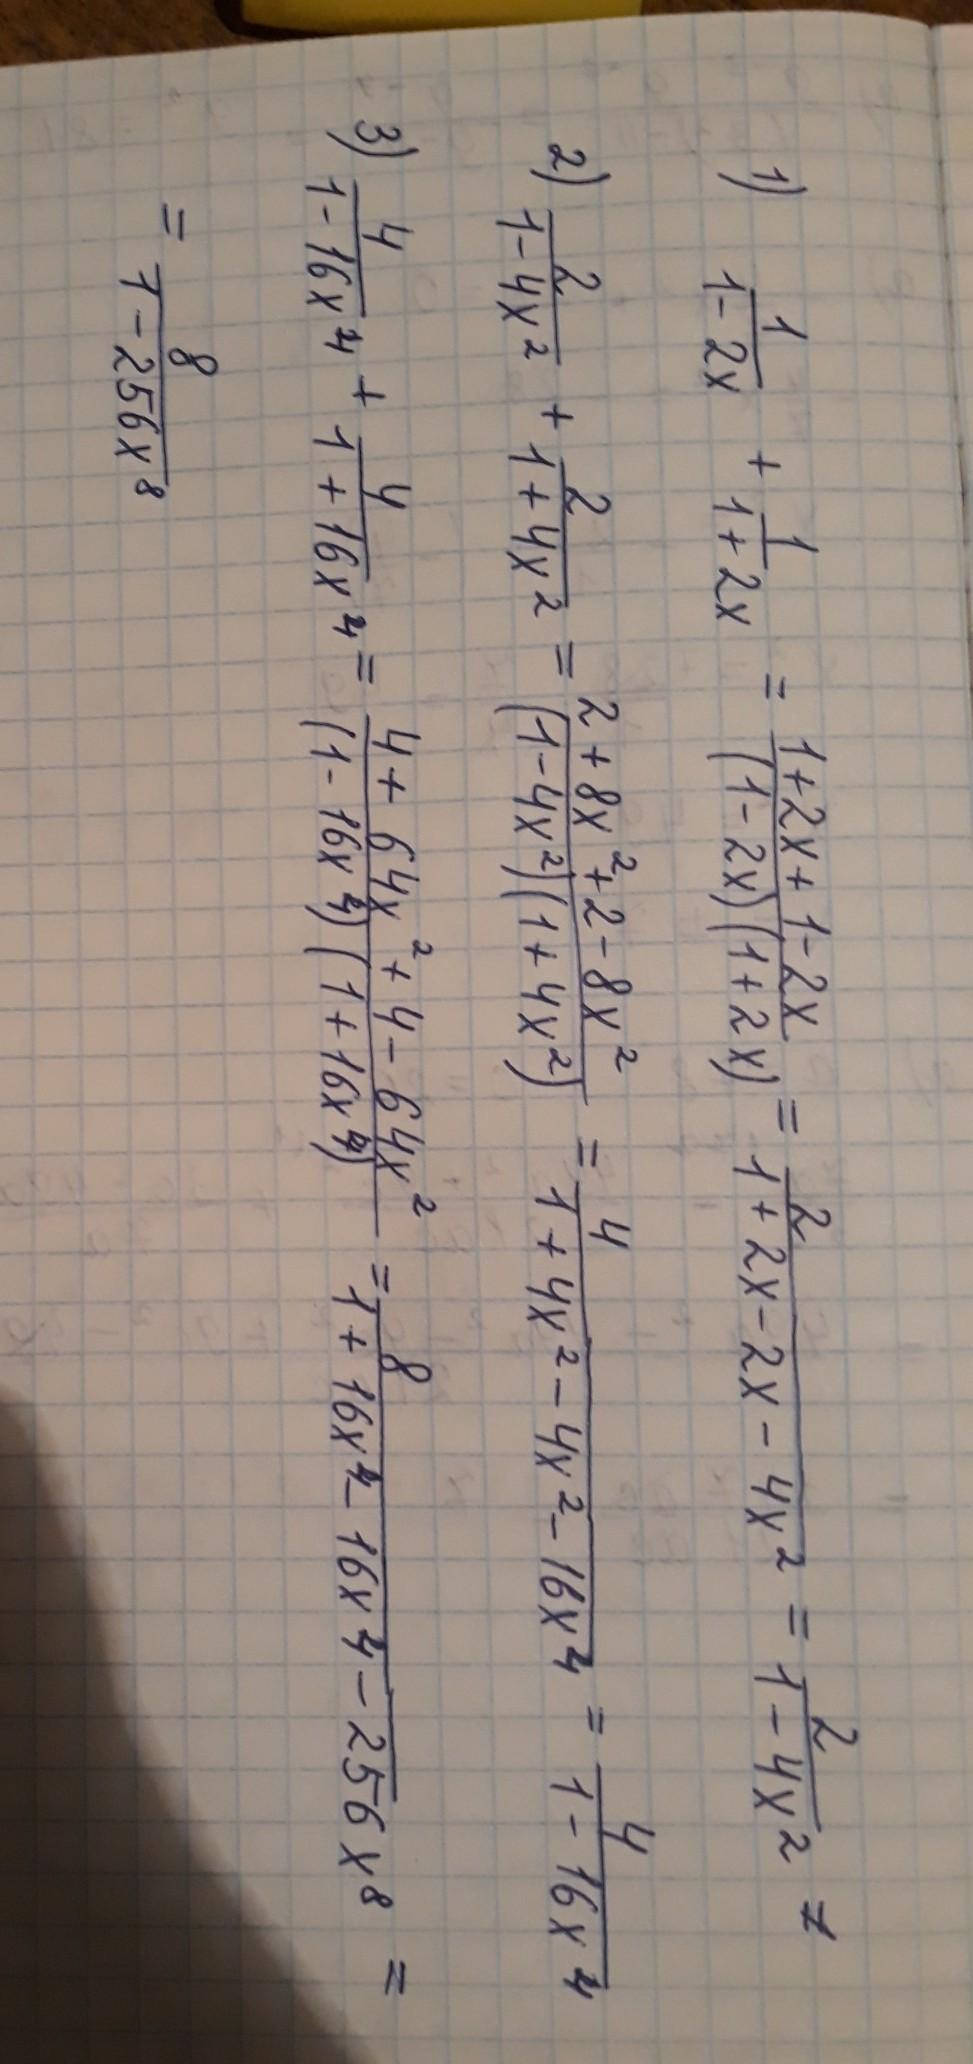 1) 1/(1-2x) + 1/(1+2x) = (1+2x+1-2x)/((1-2x)(1+2x)) = 2/(1+2x-2x-4x²) = 2/(1-4x²) ≠
2) 2/(1-4x²) + 2/(1+4x²) = (2+8x²+2-8x²)/((1-4x²)(1+4x²)) = 4/(1+4x²-4x²-16x⁴) = 4/(1-16x⁴)
3) 4/(1-16x⁴) + 4/(1+16x⁴) = (4+64x²+4-64x²)/((1-16x⁴)(1+16x⁴)) = 8/(1+16x⁴-16x⁴-256x⁸) =
= 8/(1-256x⁸)